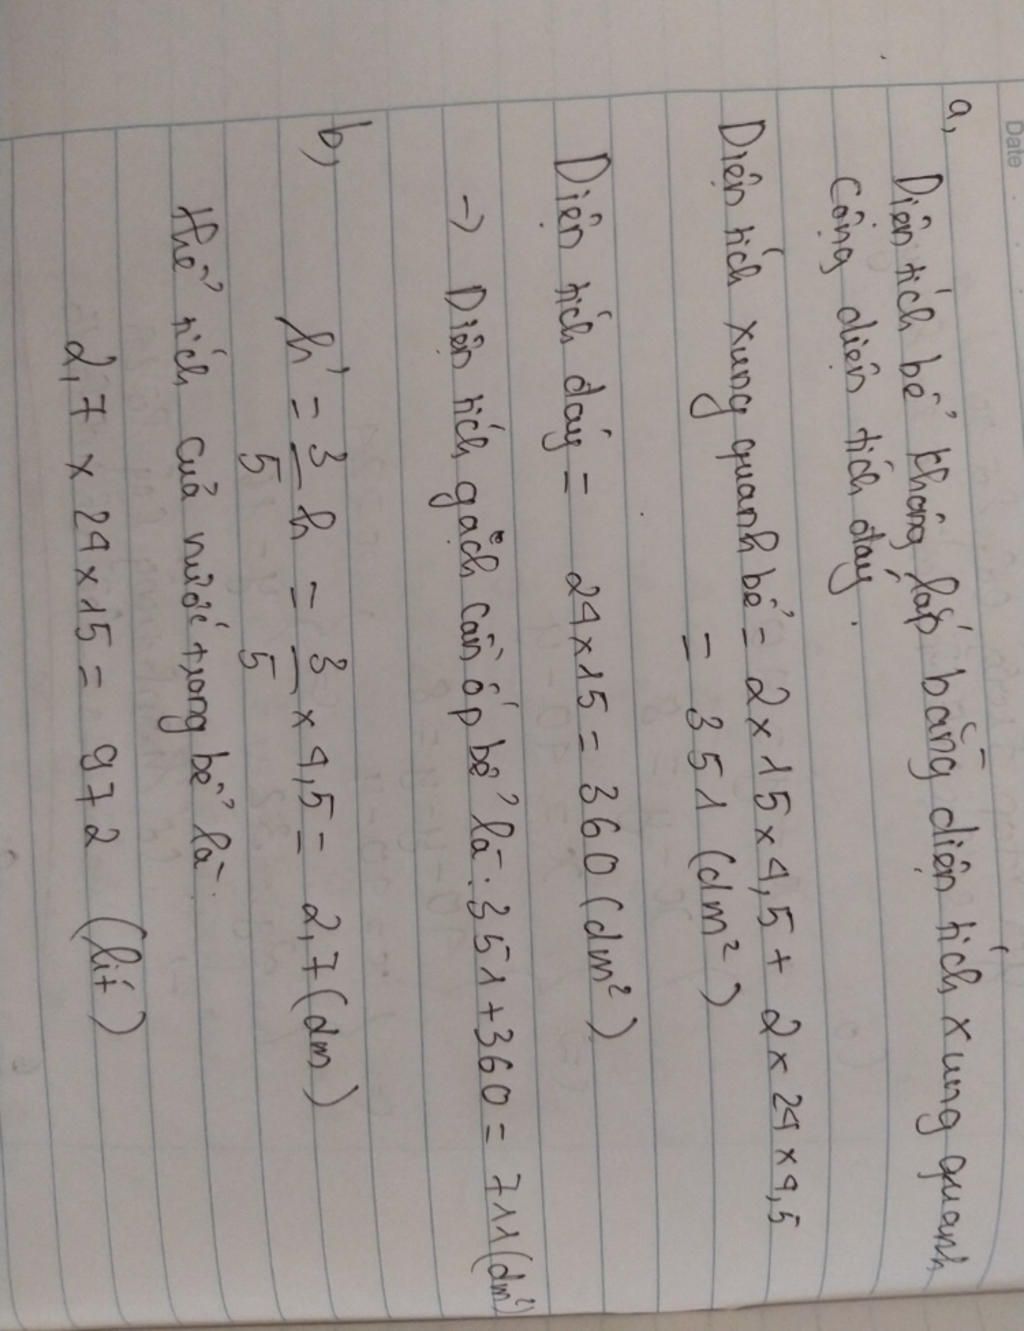 Date
a, Diện tích bể không lắp bằng diện tích xung quanh
cộng diện tích đáy.
Diện tích xung quanh bể = 2 x 15 x 4,5 + 2 x 24 x 4,5
= 351 (dm²)
Diện tích đáy = 24 x 15 = 360 (dm²)
-> Diện tích gạch cần ốp bể là: 351 + 360 = 711 (dm²)
b, h' = 3/5 h = 3/5 x 4,5 = 2,7 (dm)
Thể tích của nước trong bể là.
2,7 x 24 x 15 = 972 (lít)